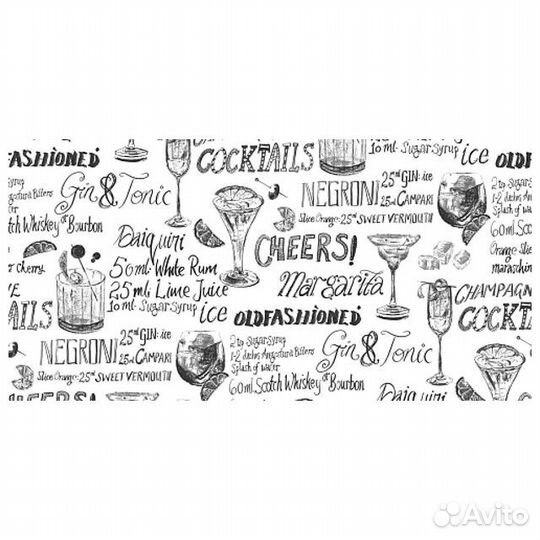 10 ml. Sugar Syrup
FASHIONED
COCKTAILS
ice
OLDFASHI
Sugar Syrup
Gin & Tonic
NEGRONI
25ml GIN. ice
25ml CAMPARI
Slice Orange - 25ml SWEET VERMOUTH
2 tsp Sugar
Splash of w
60ml Scot
tch Whiskey or Bourbon
Orange Slic
maraschin
Daiquiri
50ml. White Rum
25ml Lime Juice
10 ml. Sugar Syrup
ice
CHEERS!
Margarita
r Cherry.
CHAMPAGN
COCKT
AILS
OLDFASHIONED
2 tsp Sugar Syrup
1-2 dashes Angostura Bitters
Splash of water
60ml Scotch Whiskey or Bourbon
Gin & Tonic
NEGRONI
25ml GIN. ice
25ml CAMPARI
Slice Orange - 25ml SWEET VERMOUTH
CHEERS!
Daiquiri
Avito